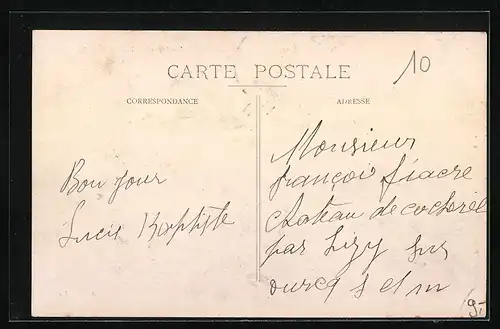 10
CARTE POSTALE
CORRESPONDANCE
ADRESSE
Bonjour
Lucie Baptiste
Monsieur
françois fiacre
chateau de cocherel
par Lizy sur
ourcq s et m
9.-